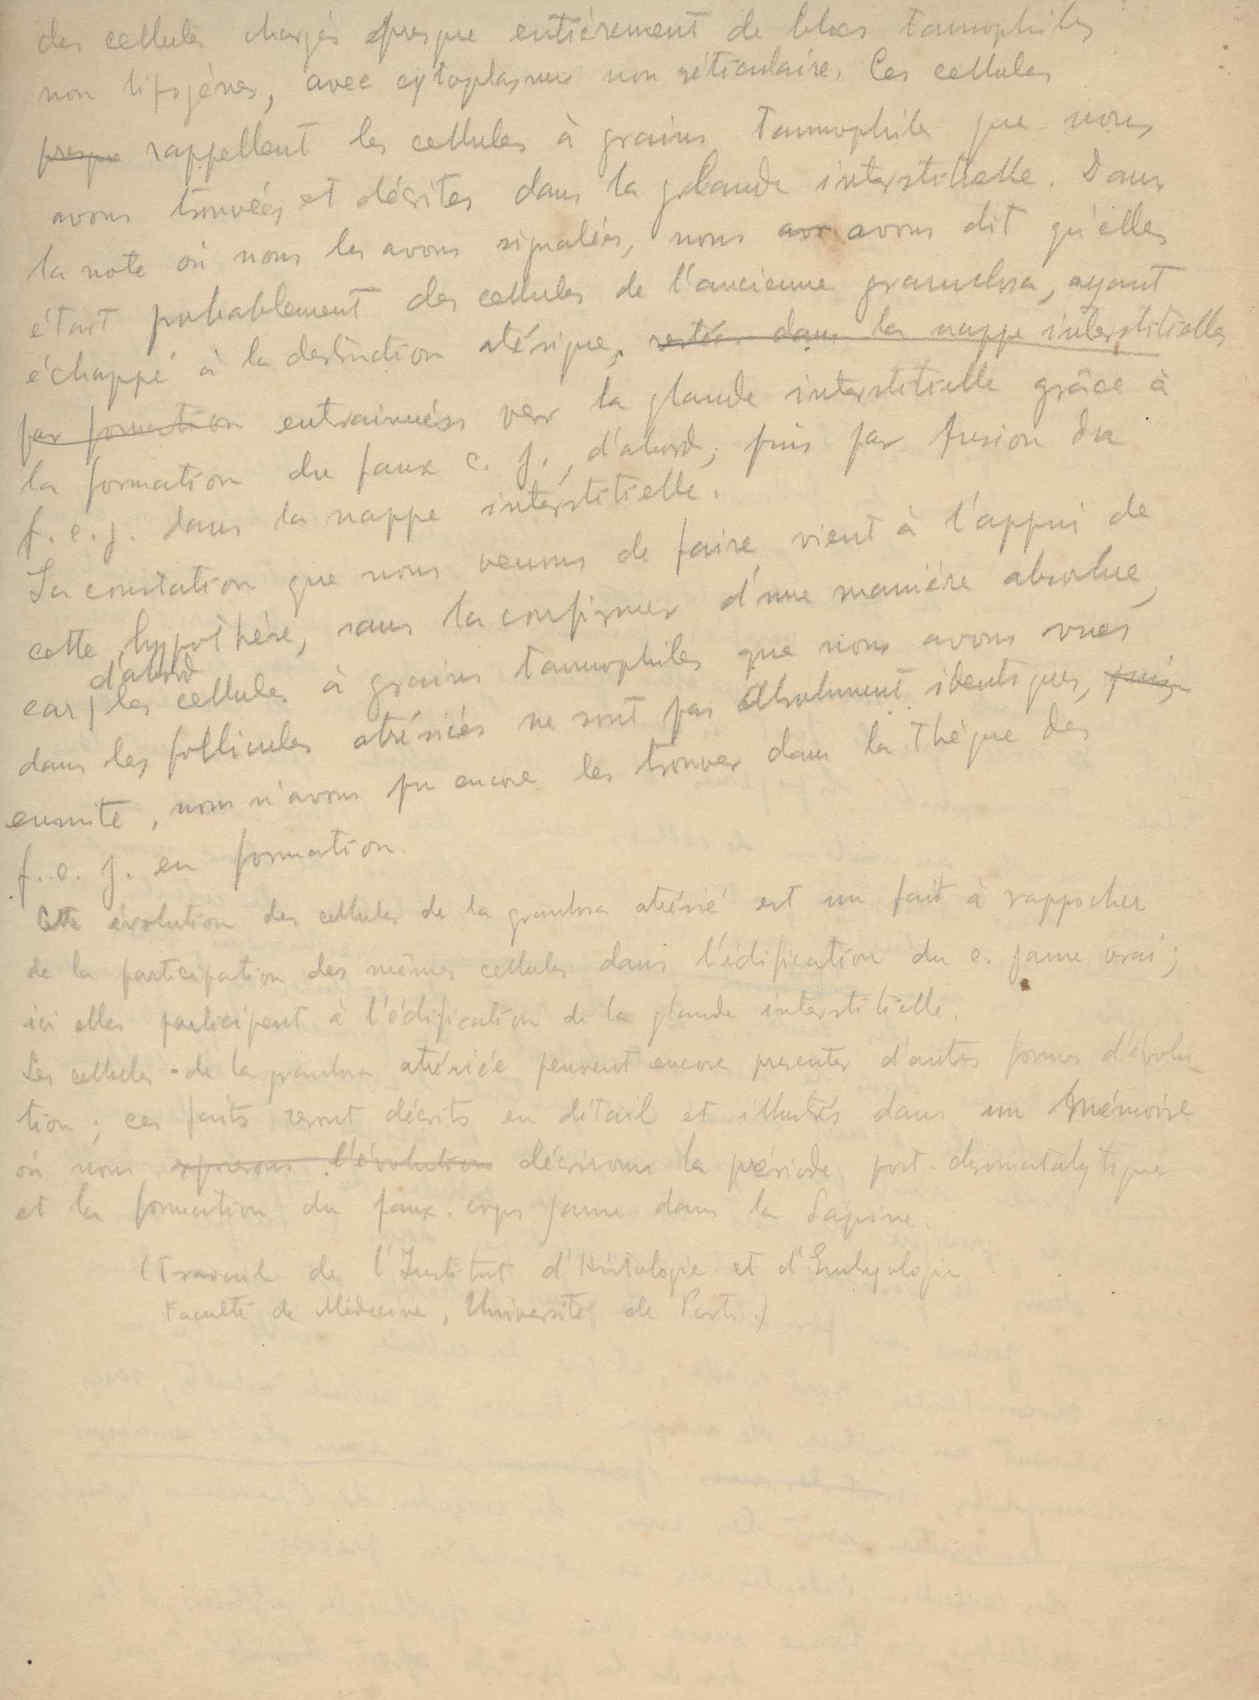 des cellules chargés presque entièrement de blocs tannophiles
non lipogènes, avec cytoplasme non réticulaire. Ces cellules
presque rappellent les cellules à grains tannophiles que nous
avons trouvées et décrites dans la glande interstitielle. Dans
la note où nous les avons signalées, nous avo avons dit qu'elles
était probablement des cellules de l'ancienne granulosa, ayant
échappé à la destruction atrésique, restés dans la nappe interstitielles
par formation entrainées ver la glande interstitielle grâce à
la formation du faux c. j., d'abord, puis par fusion du
f. c. j. dans la nappe interstitielle.
La constatation que nous venons de faire, vient à l'appui de
cette hypothèse, sans la confirmer d'une manière absolue,
d'abord
car, les cellules à grains tannophiles que nous avons vues
dans les follicules atrésiés ne sont pas absolument identiques, puis
ensuite, nous n'avons pu encore les trouver dans la thèque des
f. c. j. en formation.
Cette évolution des cellules de la granulosa atrésié est un fait à rapprocher
de la participation des mêmes cellules dans l'édification du c. jaune vrai;
ici elles participent à l'édification de la glande interstitielle.
Les cellules de la granulosa atrésiée peuvent encore presenter d'autres formes d'évolu-
tion; ces faits seront décrits en détail et illustrés dans un Mémoire
où nous exposerons l'évolution décrivons la période post-chromatolytique
et la formation du faux-corps jaune dans la Lapine.
(Travail de l'Institut d'Histologie et d'Embryologie
Faculté de Médecine, Université de Porto.)